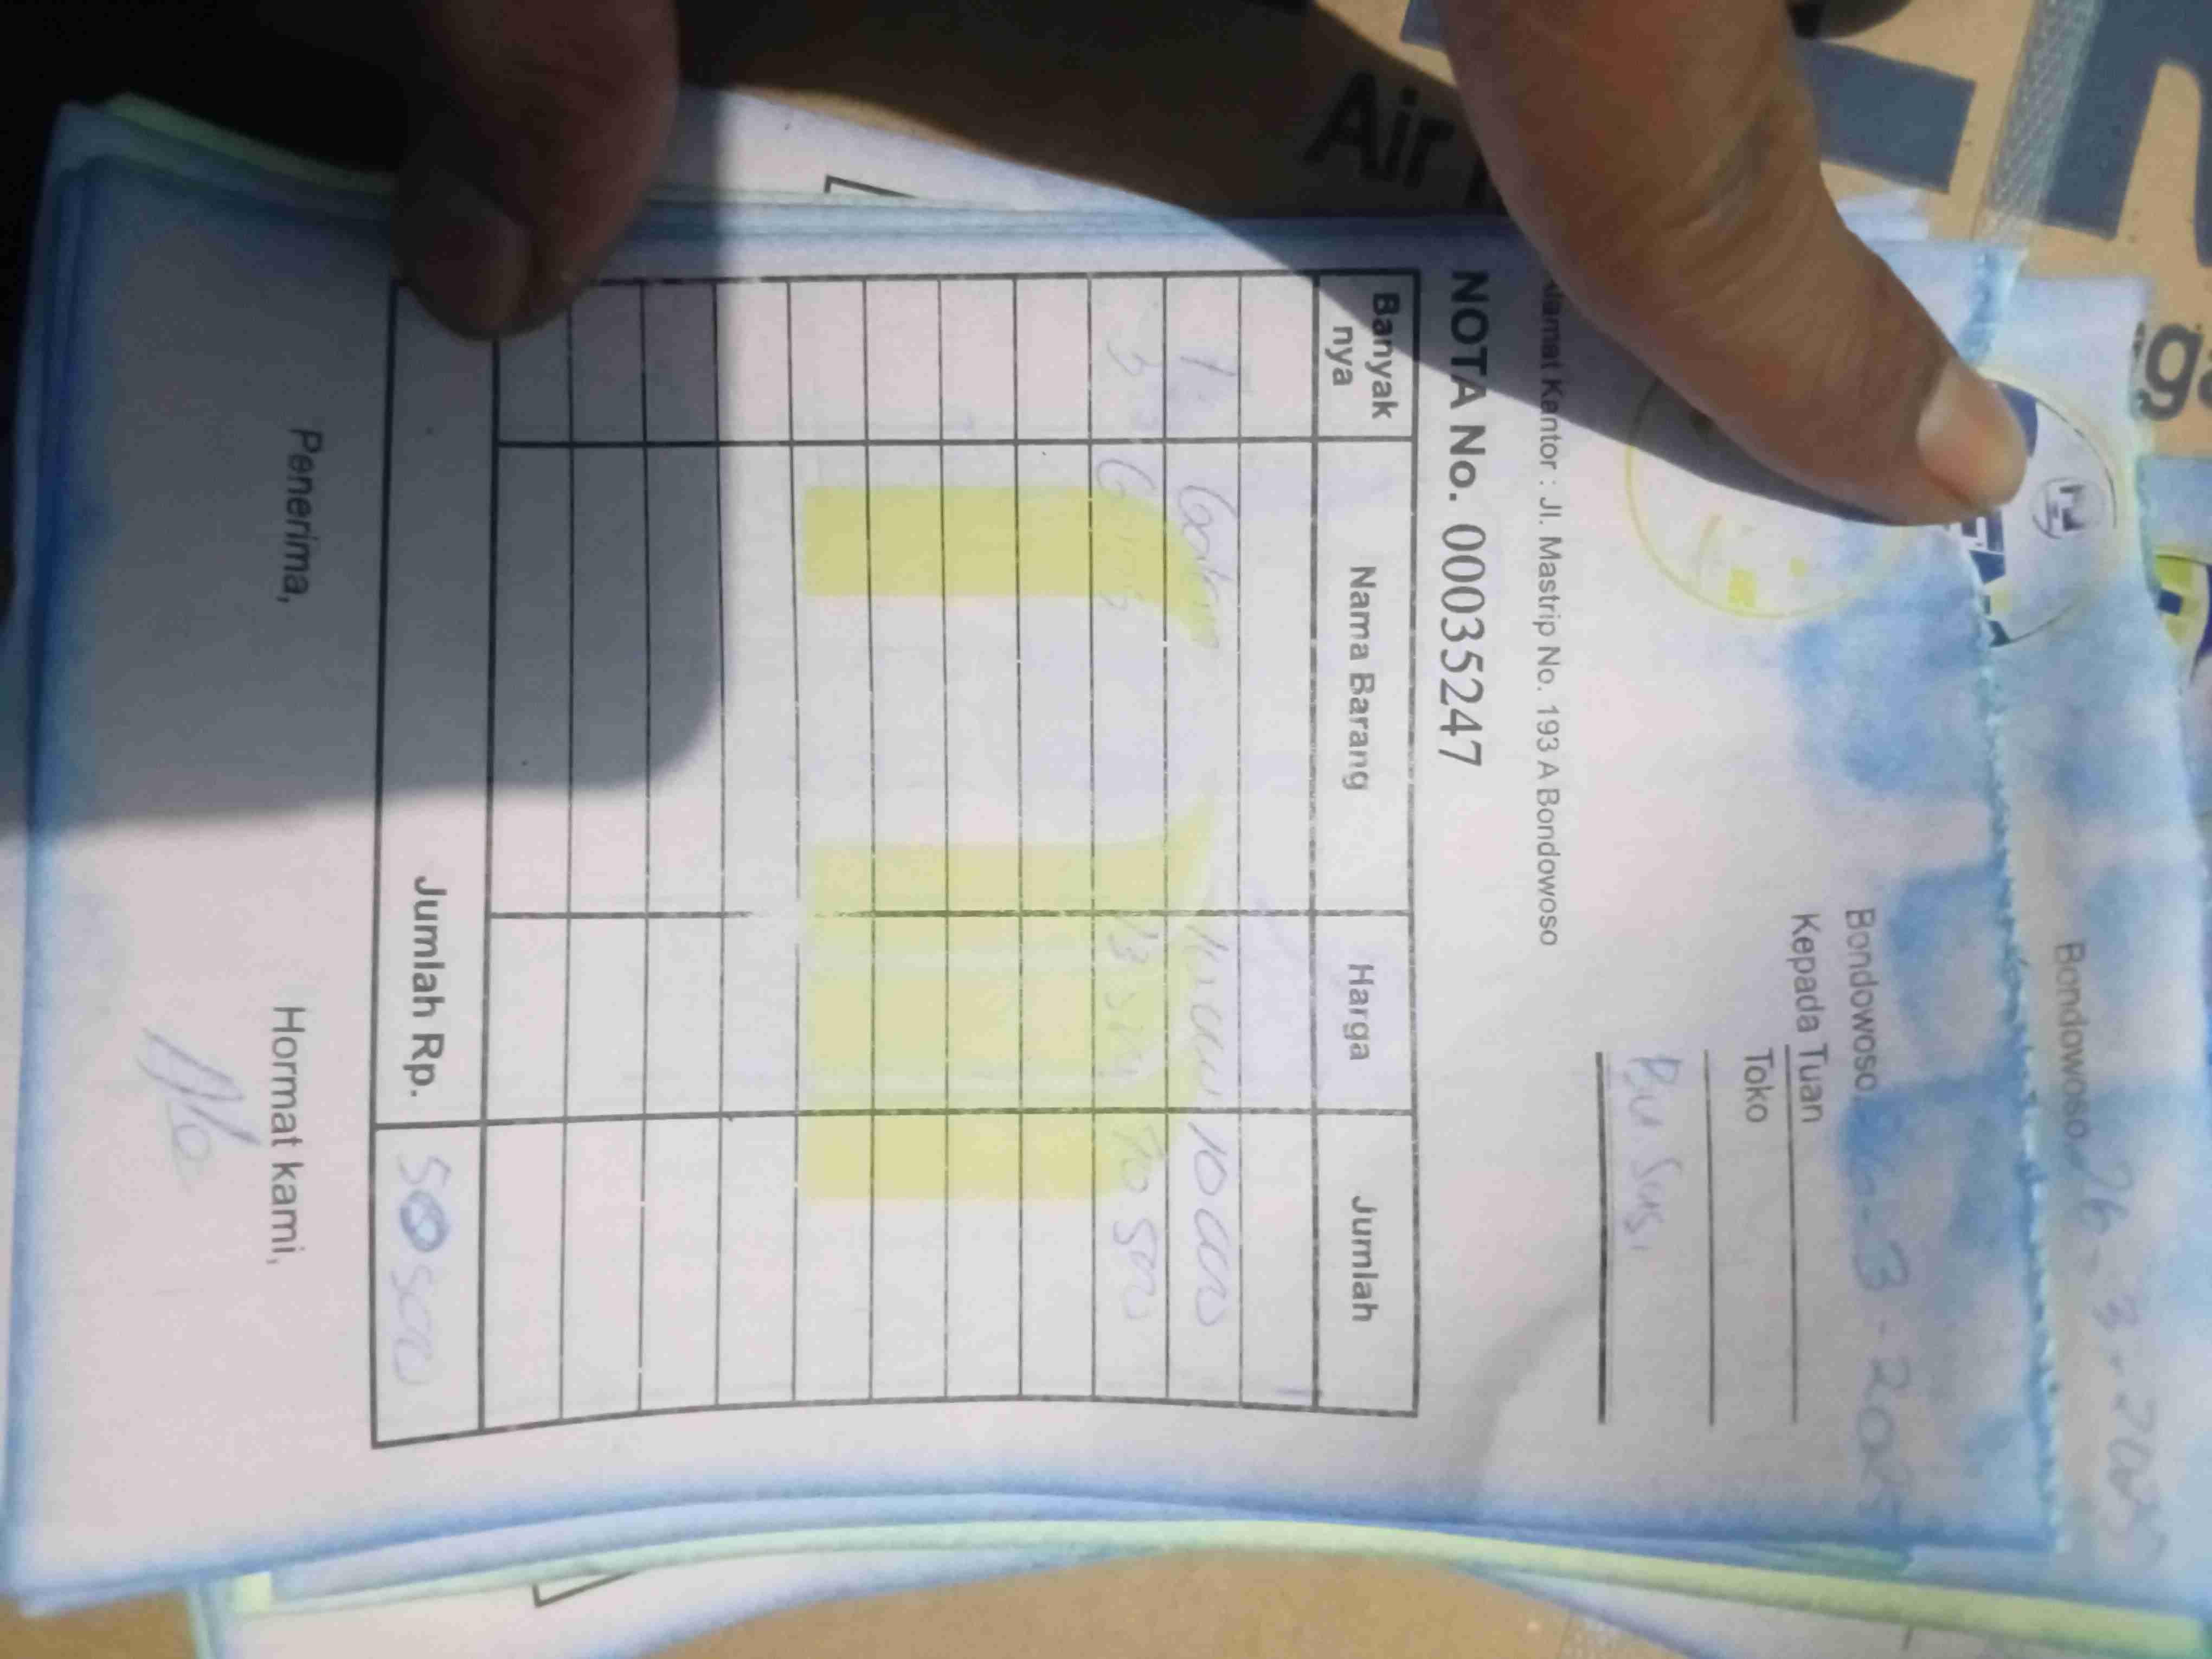 Air
Bondowoso, 26-3-2025
Bondowoso, 26-3-2025
Kepada Tuan
Toko
Bu Susi
Kantor : Jl. Mastrip No. 193 A Bondowoso
NOTA No. 00035247
Banyak nya Nama Barang Harga Jumlah
1 Galon 10000 10000
3 Gelas 13500 40500
Jumlah Rp. 50500
Penerima, Hormat kami,